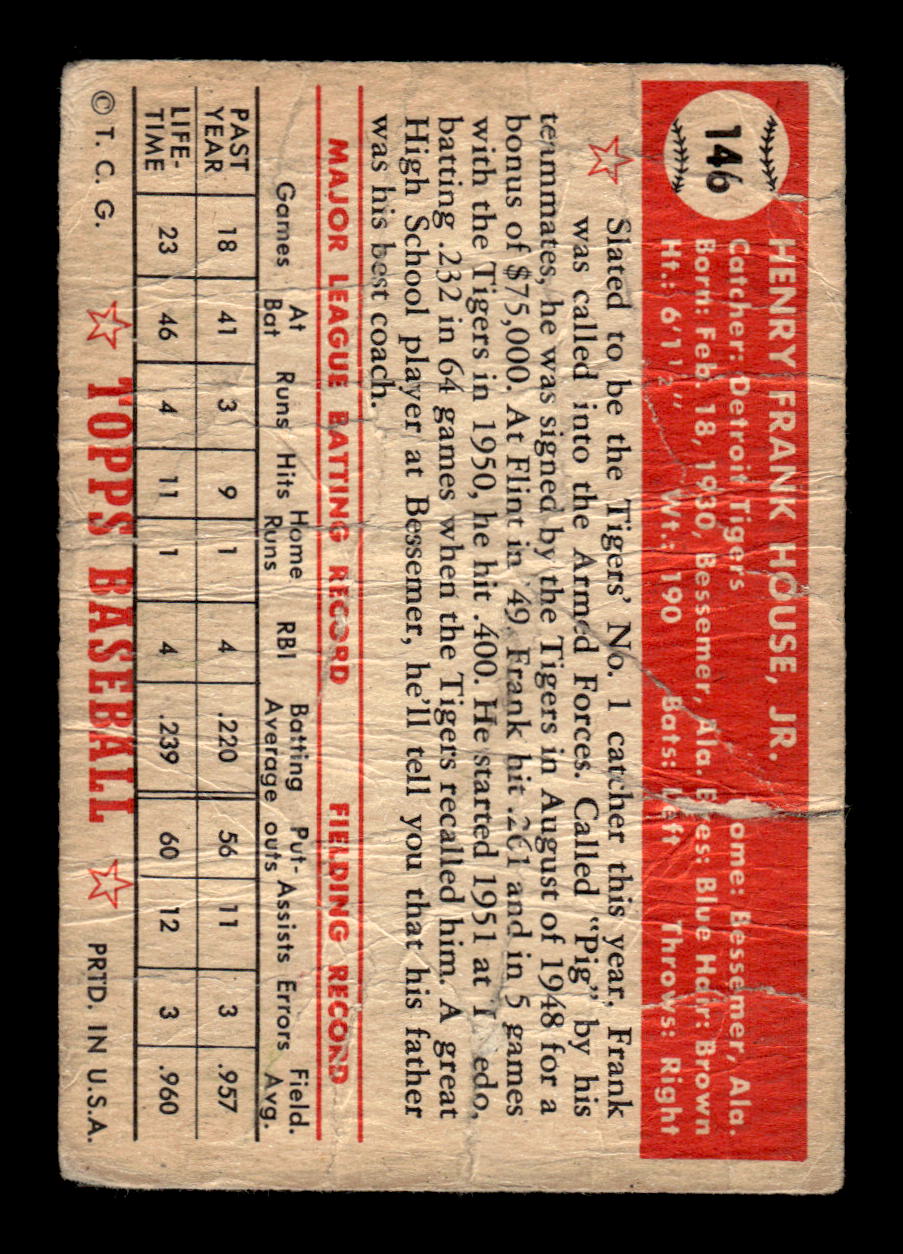 146
HENRY FRANK HOUSE, JR.
Catcher: Detroit Tigers ome: Bessemer, Ala.
Born: Feb. 18, 1930, Bessemer, Ala. Eyes: Blue Hair: Brown
Ht.: 6'1½" Wt.: 190 Bats: Left Throws: Right
Slated to be the Tigers' No. 1 catcher this year, Frank
was called into the Armed Forces. Called "Pig" by his
teammates, he was signed by the Tigers in August of 1948 for a
bonus of $75,000. At Flint in '49, Frank hit .261 and in 5 games
with the Tigers in 1950, he hit .400. He started 1951 at T edo,
batting .232 in 64 games when the Tigers recalled him. A great
High School player at Bessemer, he'll tell you that his father
was his best coach.
MAJOR LEAGUE BATTING RECORD FIELDING RECORD
Games At Bat Runs Hits Home Runs RBI Batting Average Put-outs Assists Errors Field. Avg.
PAST YEAR 18 41 3 9 1 4 .220 56 11 3 .957
LIFE-TIME 23 46 4 11 1 4 .239 60 12 3 .960
© T. C. G. TOPPS BASEBALL PRTD. IN U.S.A.